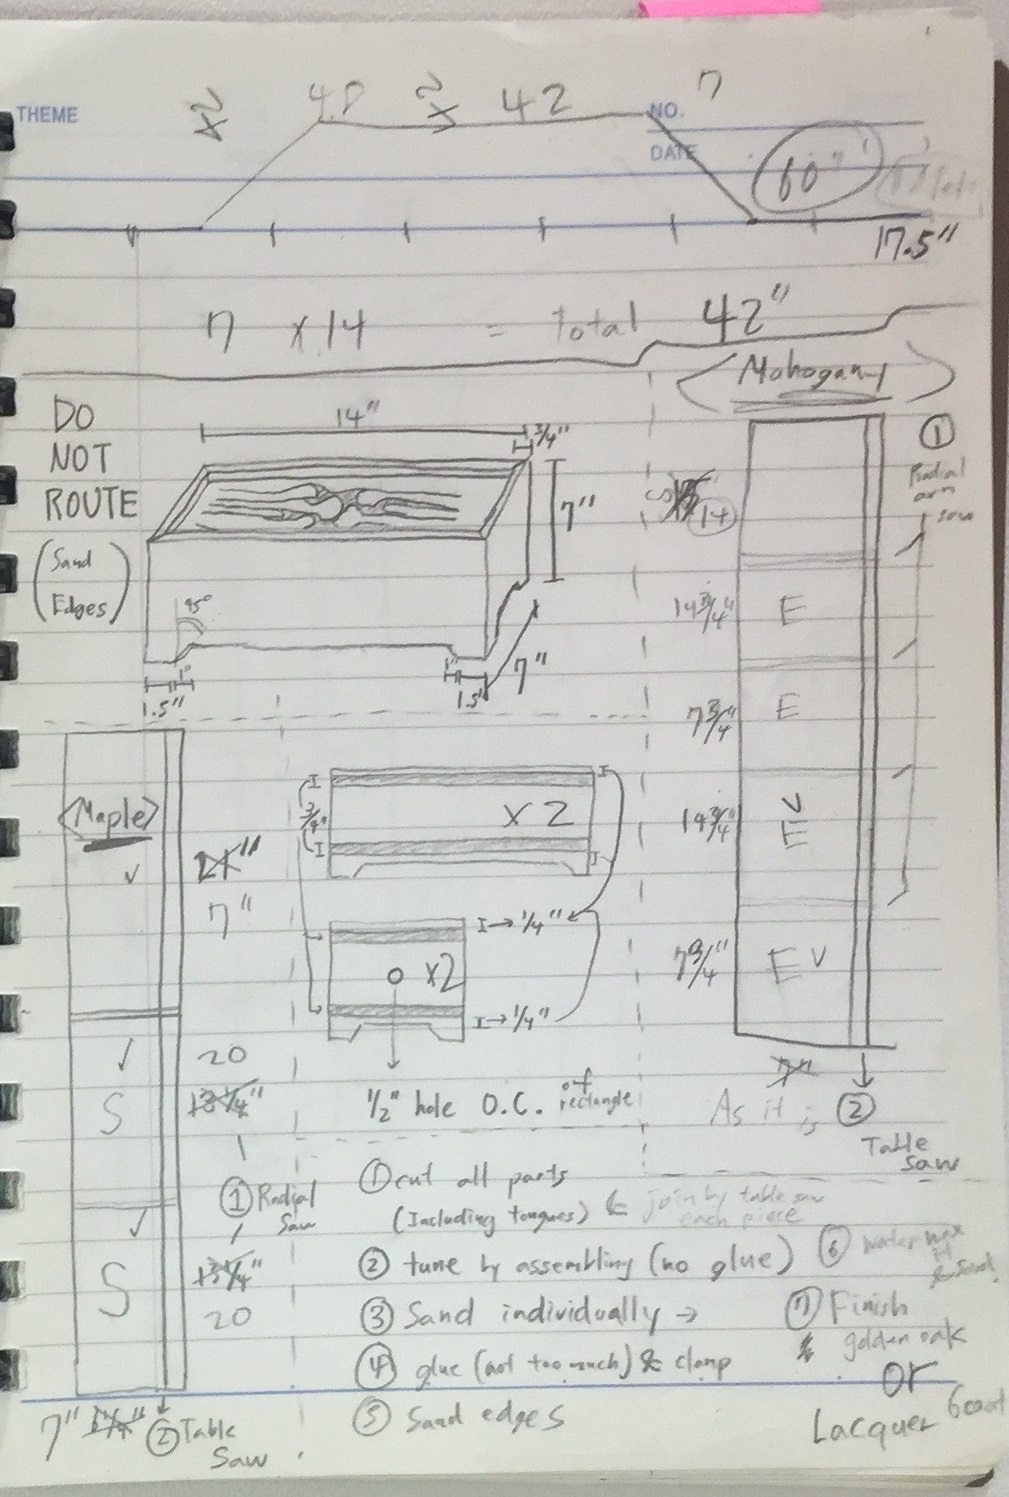 THEME
NO.
DATE
42
7
60"
17.5"
7 x 14 = Total 42"
<Mahogany>
DO
NOT
ROUTE
(Sand
Edges)
14"
3/4"
7"
45°
1"
1.5"
1"
1.5"
7"
14
14 3/4"
E
7 3/4"
E
14 3/4"
E
7 3/4"
E
1
Radial
arm
saw
As it is
2
Table
Saw
<Maple>
21"
7"
20
13 1/4"
S
1 Radial
Saw
13 1/4"
S
20
7"
2 Table
Saw
3/4"
x2
1/4"
x2
1/4"
1/2" hole O.C. of rectangle
1 cut all parts
(Including tongues) & join by table saw
each piece
2 tune by assembling (no glue)
3 Sand individually →
4 glue (not too much) & clamp
5 Sand edges
6 Water
& Sand.
7 Finish
golden oak
or
Lacquer 6 coat